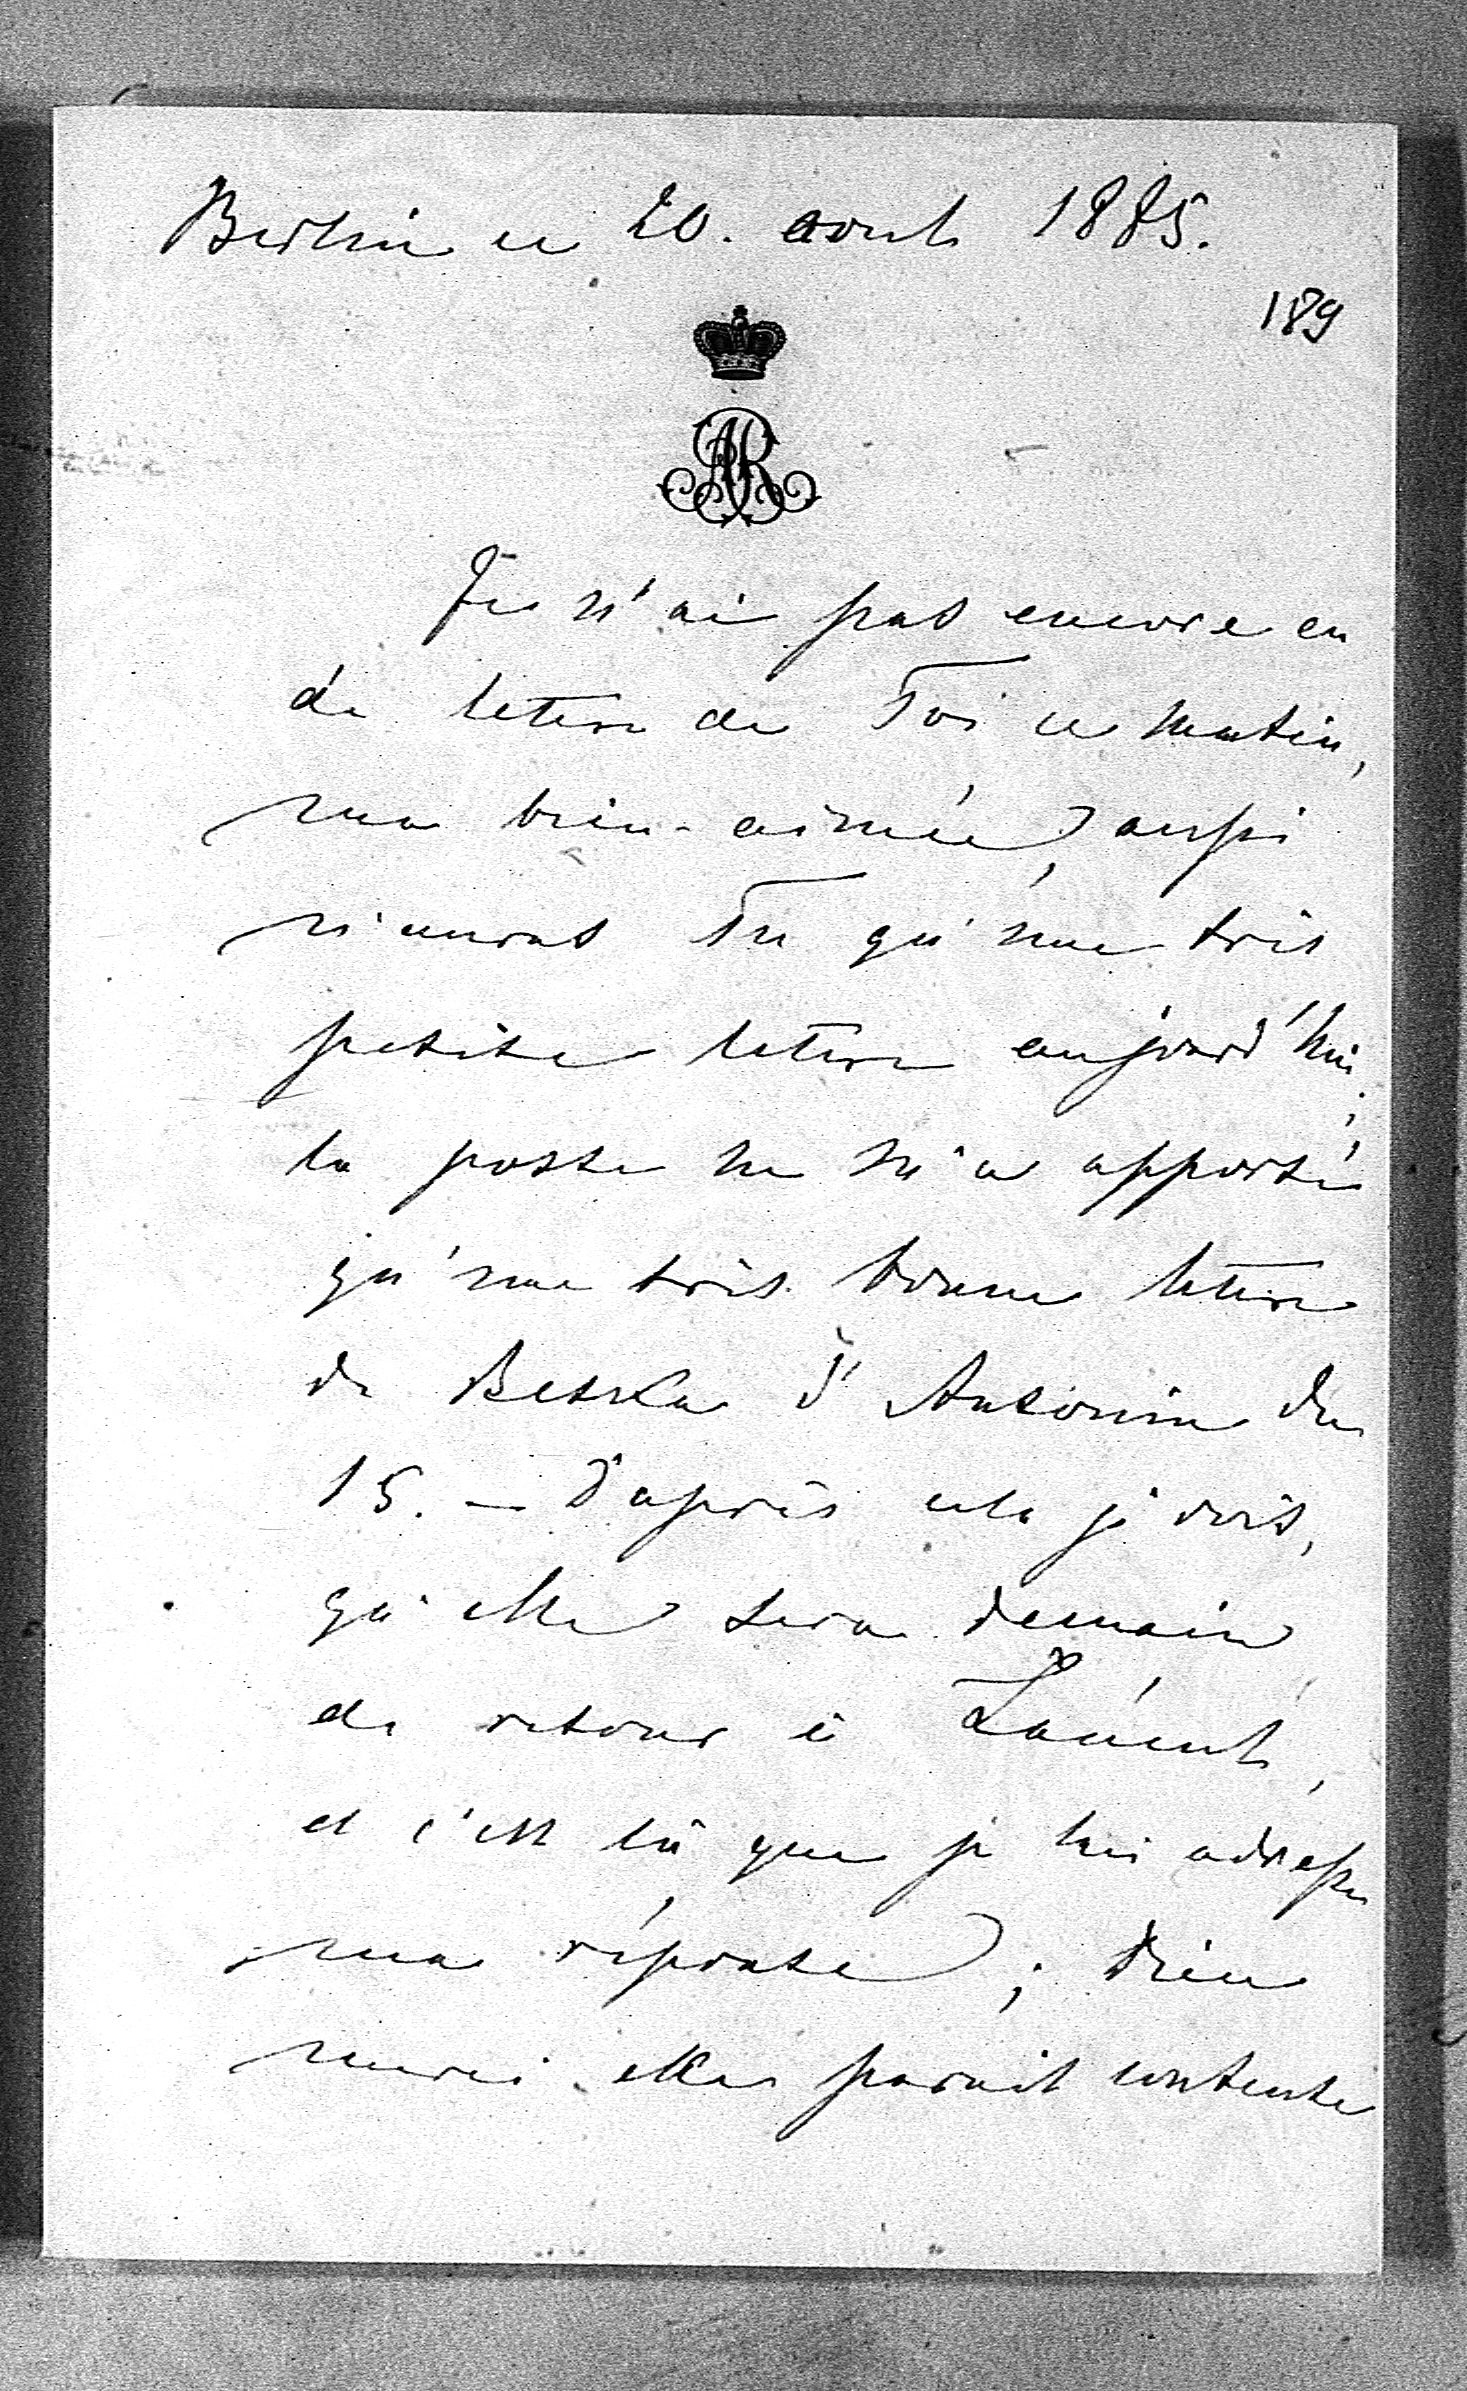 Berlin ce 20. aout 1885.
189
AR
Je n'ai pas encore eu
de lettre de Toi ce matin,
ma bien-aimée, aussi
n'auras Tu qu'une très
petite lettre aujourd'hui;
la poste ne m'a apporté
qu'une très bonne lettre
de Betka d'Antonin du
15. — D'après cela je vois,
qu'elle sera demain
de retour à Łańcut,
et c'est là que je lui adresse
ma réponse; Dieu
merci elle parait contente